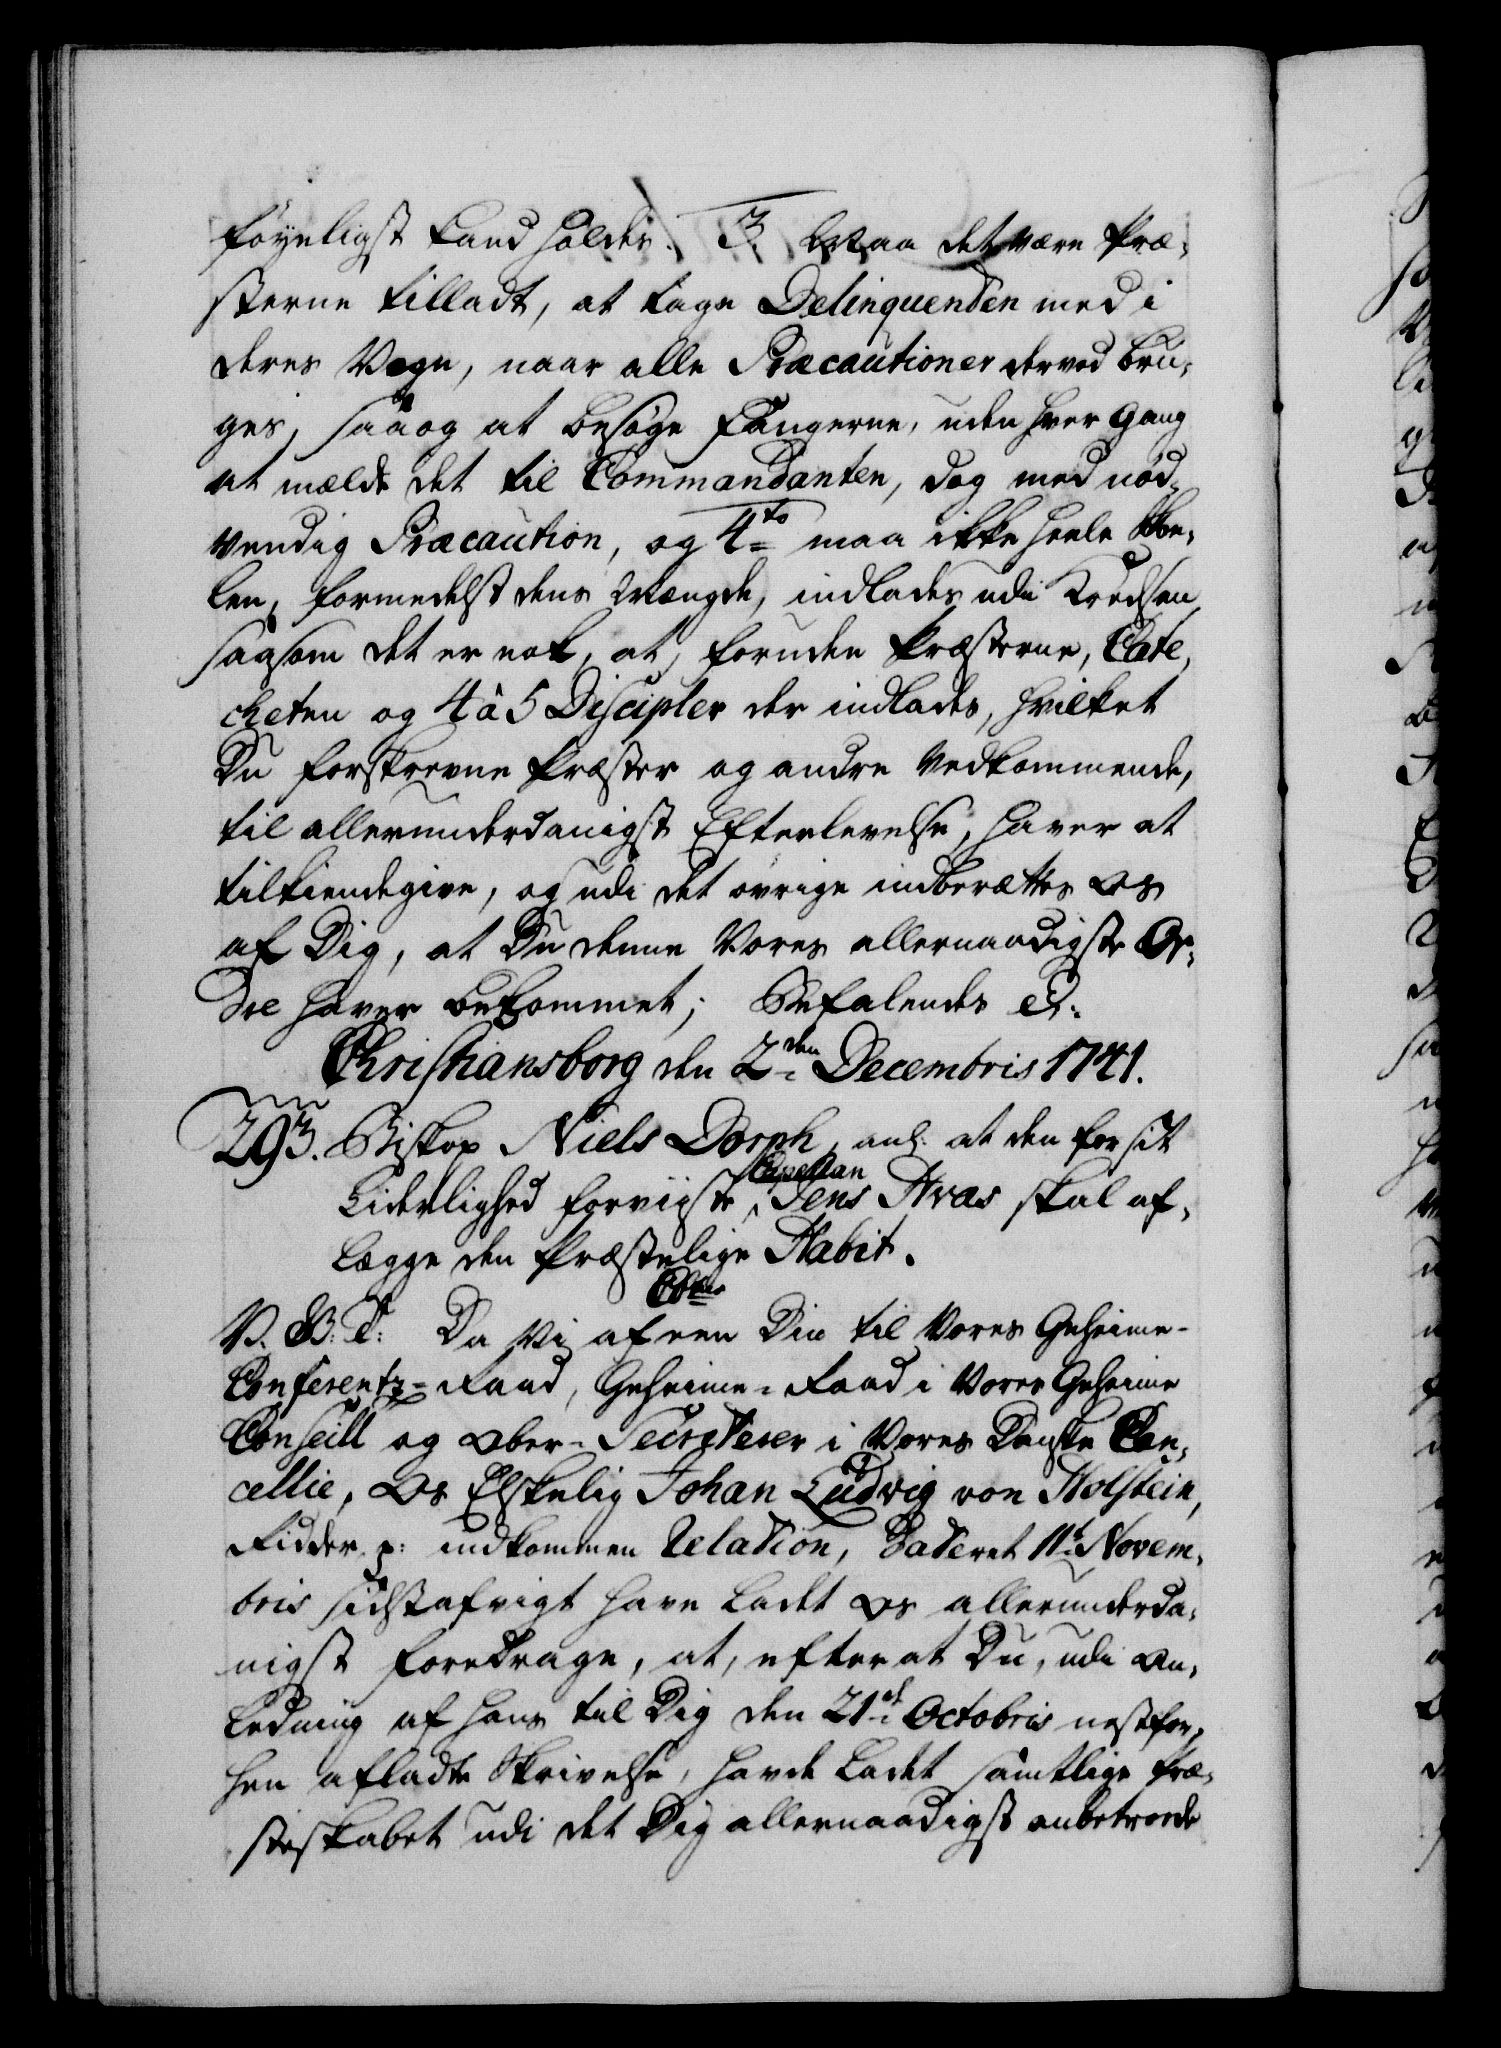 føyeligst kand holdes. 3. Maa det være Præ-
sterne tilladt, at tage Delinquenden med i
deres Vogn, naar alle Præcautioner derved bru-
ges, saa og at besøge Fangerne, uden hver gang
at melde det til Commandanten, dog med nød-
vendig Præcaution, og 4to maa ikke heele Sko-
len, formedelst dens Mængde, indlades udi Kredsen,
saasom det er nok, at, foruden Præsterne, Cate-
cheten og 4 à 5 Discipler der indlades, hvilket
Du forskrevne Præster og andre Vedkommende,
til allerunderdanigst Efterlevelse, haver at
tilkiendegive, og udi det øvrige indberettes Os
af Dig, at Du denne Vores allernaadigste Or-
dre haver bekommet; Befalendes etc:
Christiansborg den 2den Decembris 1741.
293. Biskop Niels Dorph, anl. at den for sit
Liderlighed forvigste Capellan Jens Hvas skal af-
lægge den Præstelige Habit.
V. G. T: Da Vi af een Din til Vores Geheime-
Conferentz-Raad, Geheime-Raad i Vores Geheime
Conseill og Ober-Secreterer i Vores Danske Can-
cellie, Os Elskelig Johan Ludvig von Holstein,
Ridder, p: indkommen Relation, dateret 11t Novem-
bris sidst afvigt have ladet Os allerunderda-
nigst foredrage, at, efter at Du, udi An-
ledning af hans til Dig den 21de Octobris nestfor-
hen afladte Skrivelse, havde ladet samtlige Præ-
steskabet udi det Dig allernaadigst anbetroede